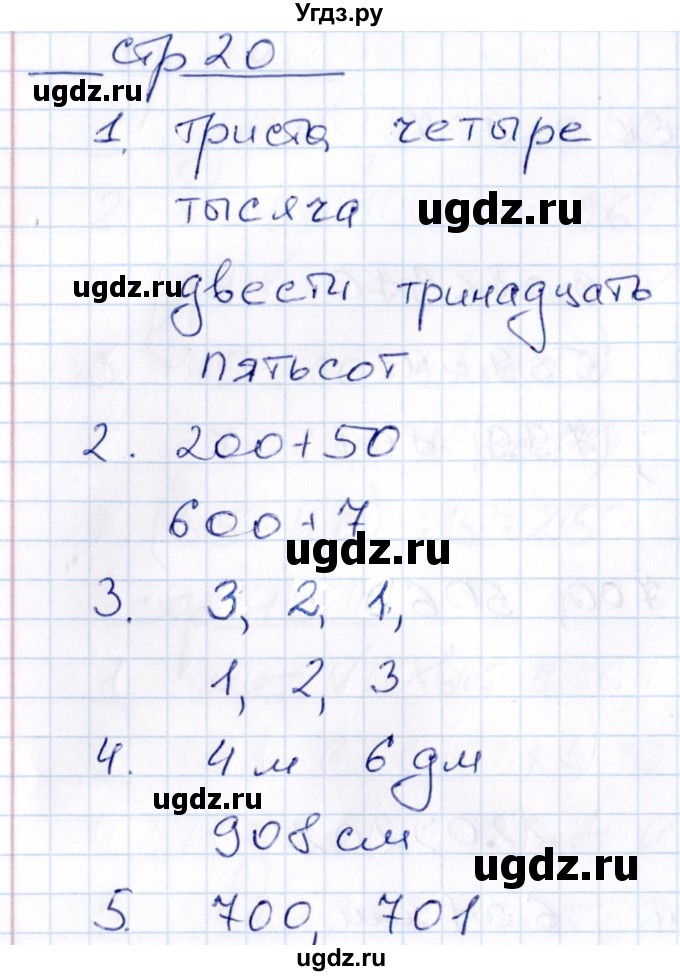 Угдз.ру
стр 20
ugdz.ru
1. триста четыре
тысяча ugdz.ru
ugdz.ru двести тринадцать
пятьсот
2. 200+50
600+7
ugdz.ru
3. 3, 2, 1,
1, 2, 3
4. 4 м 6 дм
ugdz.ru
908 см
5. 700, 701
ugdz.ru